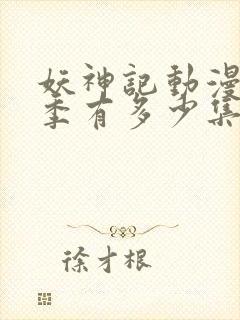 妖神記動漫
季有多少集
徐才根